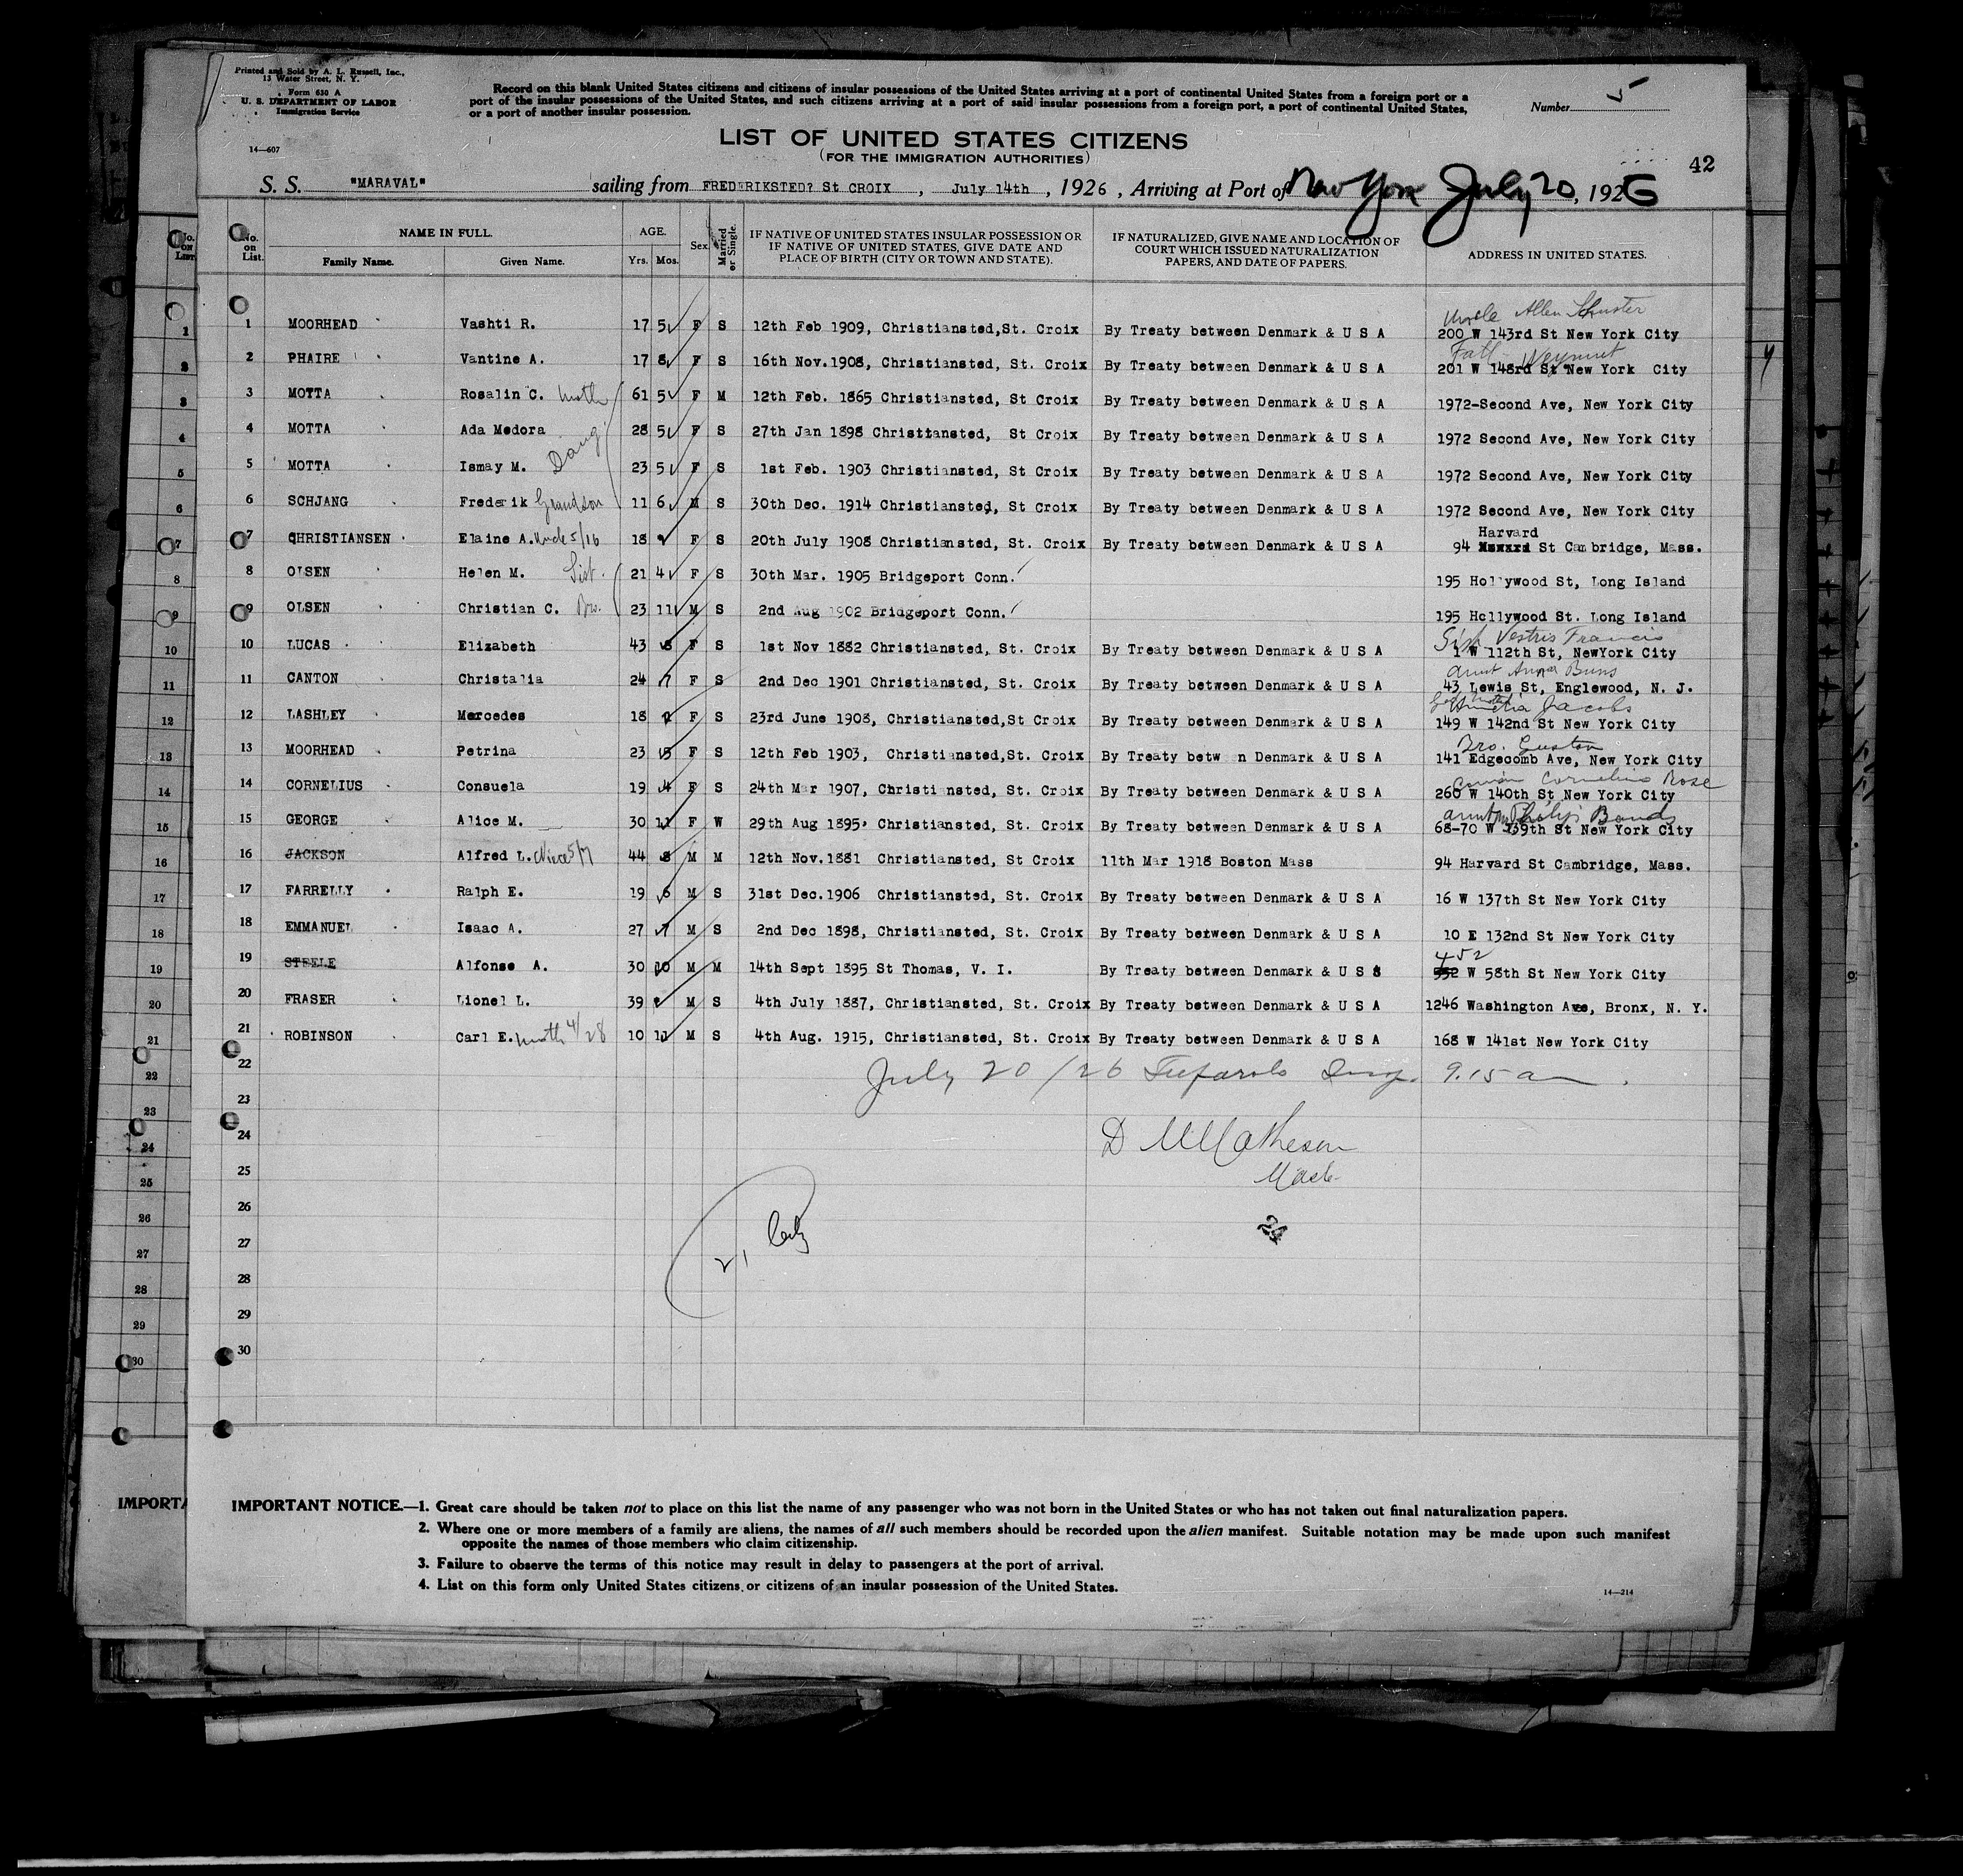 Printed and Sold by A. L. Russell, Inc.,
13 Water Street, N. Y.
Form 630 A
U. S. DEPARTMENT OF LABOR
Immigration Service
14—607
Record on this blank United States citizens and citizens of insular possessions of the United States arriving at a port of continental United States from a foreign port or a
port of the insular possessions of the United States, and such citizens arriving at a port of said insular possessions from a foreign port, a port of continental United States,
or a port of another insular possession.
Number 5
LIST OF UNITED STATES CITIZENS
(FOR THE IMMIGRATION AUTHORITIES)
42
S. S. "MARAVAL" sailing from FREDERIKSTED? St CROIX , July 14th , 1926 , Arriving at Port of New York July 20, 1926
No. on List. NAME IN FULL. Family Name. Given Name. AGE. Yrs. Mos. Sex Married or Single. IF NATIVE OF UNITED STATES INSULAR POSSESSION OR IF NATIVE OF UNITED STATES, GIVE DATE AND PLACE OF BIRTH (CITY OR TOWN AND STATE). IF NATURALIZED, GIVE NAME AND LOCATION OF COURT WHICH ISSUED NATURALIZATION PAPERS, AND DATE OF PAPERS. ADDRESS IN UNITED STATES.
Uncle Allen Schuster
1 MOORHEAD Vashti R. 17 5 F S 12th Feb 1909, Christiansted,St. Croix By Treaty between Denmark & U S A 200 W 143rd St New York City
Fath
2 PHAIRE Vantine A. 17 8 F S 16th Nov.1908, Christiansted, St. Croix By Treaty between Denmark & U S A 201 W 148rd St New York City
3 MOTTA Rosalin C. Moth 61 5 F M 12th Feb. 1865 Christiansted, St Croix By Treaty between Denmark & U S A 1972-Second Ave, New York City
4 MOTTA Ada Medora 28 5 F S 27th Jan 1898 Christtansted, St Croix By Treaty between Denmark & U S A 1972 Second Ave, New York City
Daug
5 MOTTA Ismay M. 23 5 F S 1st Feb. 1903 Christiansted, St Croix By Treaty between Denmark & U S A 1972 Second Ave, New York City
6 SCHJANG Frederik Grandson 11 6 M S 30th Dec. 1914 Christiansted, St Croix By Treaty between Denmark & U S A 1972 Second Ave, New York City
Harvard
7 CHRISTIANSEN Elaine A. Uncle 5/16 18 F S 20th July 1908 Christiansted, St. Croix By Treaty between Denmark & U S A 94 St Cambridge, Mass.
8 OLSEN Helen M. Sist. 21 4 F S 30th Mar. 1905 Bridgeport Conn. 195 Hollywood St, Long Island
9 OLSEN Christian C. Bro. 23 11 M S 2nd Aug 1902 Bridgeport Conn. 195 Hollywood St. Long Island
Sist Vestris Francis
10 LUCAS Elizabeth 43 8 F S 1st Nov 1882 Christiansted, St. Croix By Treaty between Denmark & U S A 1 W 112th St, NewYork City
aunt Anna Buns
11 CANTON Christalia 24 7 F S 2nd Dec 1901 Christiansted, St. Croix By Treaty between Denmark & U S A 43 Lewis St, Englewood, N. J.
Jacobs
12 LASHLEY Mercedes 18 F S 23rd June 1908, Christiansted,St Croix By Treaty between Denmark & U S A 149 W 142nd St New York City
Bro. Guston
13 MOORHEAD Petrina 23 5 F S 12th Feb 1903, Christiansted,St. Croix By Treaty betw n Denmark & U S A 141 Edgecomb Ave, New York City
Cornelius Rose
14 CORNELIUS Consuela 19 4 F S 24th Mar 1907, Christiansted, St. Croix By Treaty between Denmark & U S A 260 W 140th St New York City
aunt
15 GEORGE Alice M. 30 11 F W 29th Aug 1895, Christiansted, St. Croix By Treaty between Denmark & U S A 68-70 W 139th St New York City
16 JACKSON Alfred L. Niece 5/7 44 8 M M 12th Nov.1881 Christiansted, St Croix 11th Mar 1918 Boston Mass 94 Harvard St Cambridge, Mass.
17 FARRELLY Ralph E. 19 6 M S 31st Dec.1906 Christiansted, St. Croix By Treaty between Denmark & U S A 16 W 137th St New York City
18 EMMANUEL Isaac A. 27 7 M S 2nd Dec 1898, Christiansted, St. Croix By Treaty between Denmark & U S A 10 E 132nd St New York City
452
19 STEELE Alfonse A. 30 10 M M 14th Sept 1895 St Thomas, V. I. By Treaty between Denmark & U S S W 58th St New York City
20 FRASER Lionel L. 39 M S 4th July 1887, Christiansted, St. Croix By Treaty between Denmark & U S A 1246 Washington Ave, Bronx, N. Y.
21 ROBINSON Carl E. moth 4/28 10 11 M S 4th Aug. 1915, Christiansted, St. Croix By Treaty between Denmark & U S A 168 W 141st New York City
22 July 20/26 Insp. 9.15 am.
23
24 D Matheson
25
26
21
27
28
29
30
IMPORTANT NOTICE.—1. Great care should be taken not to place on this list the name of any passenger who was not born in the United States or who has not taken out final naturalization papers.
2. Where one or more members of a family are aliens, the names of all such members should be recorded upon the alien manifest. Suitable notation may be made upon such manifest
opposite the names of those members who claim citizenship.
3. Failure to observe the terms of this notice may result in delay to passengers at the port of arrival.
4. List on this form only United States citizens or citizens of an insular possession of the United States.
14—214